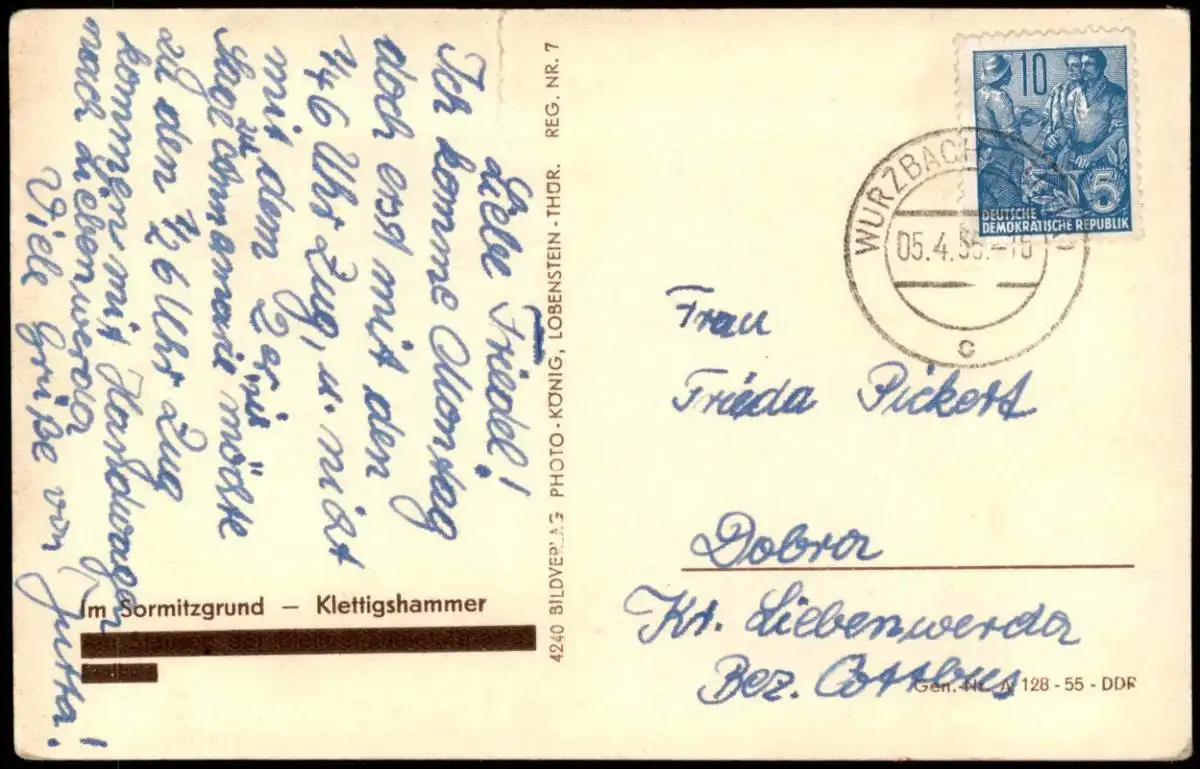 Liebe Friedel!
Ich komme Montag
doch erst mit den
1/4 6 Uhr Zug, u. nicht
mit dem 2
zu
möchte
den 1/2 6 Uhr Zug
kommen mit Handwagen
nach Liebenwerda
Viele Grüße von Jutta!
Im Sormitzgrund – Klettigshammer
4240 BILDVERLAG PHOTO-KÖNIG, LOBENSTEIN-THÜR. REG. NR. 7
10
5
DEUTSCHE
DEMOKRATISCHE REPUBLIK
WURZBACH
05.4.56.-16
c
Frau
Frieda Pickert
Dobra
Kr. Liebenwerda
Bez. Cottbus
Gen.-Nr. A 128 - 55 - DDR